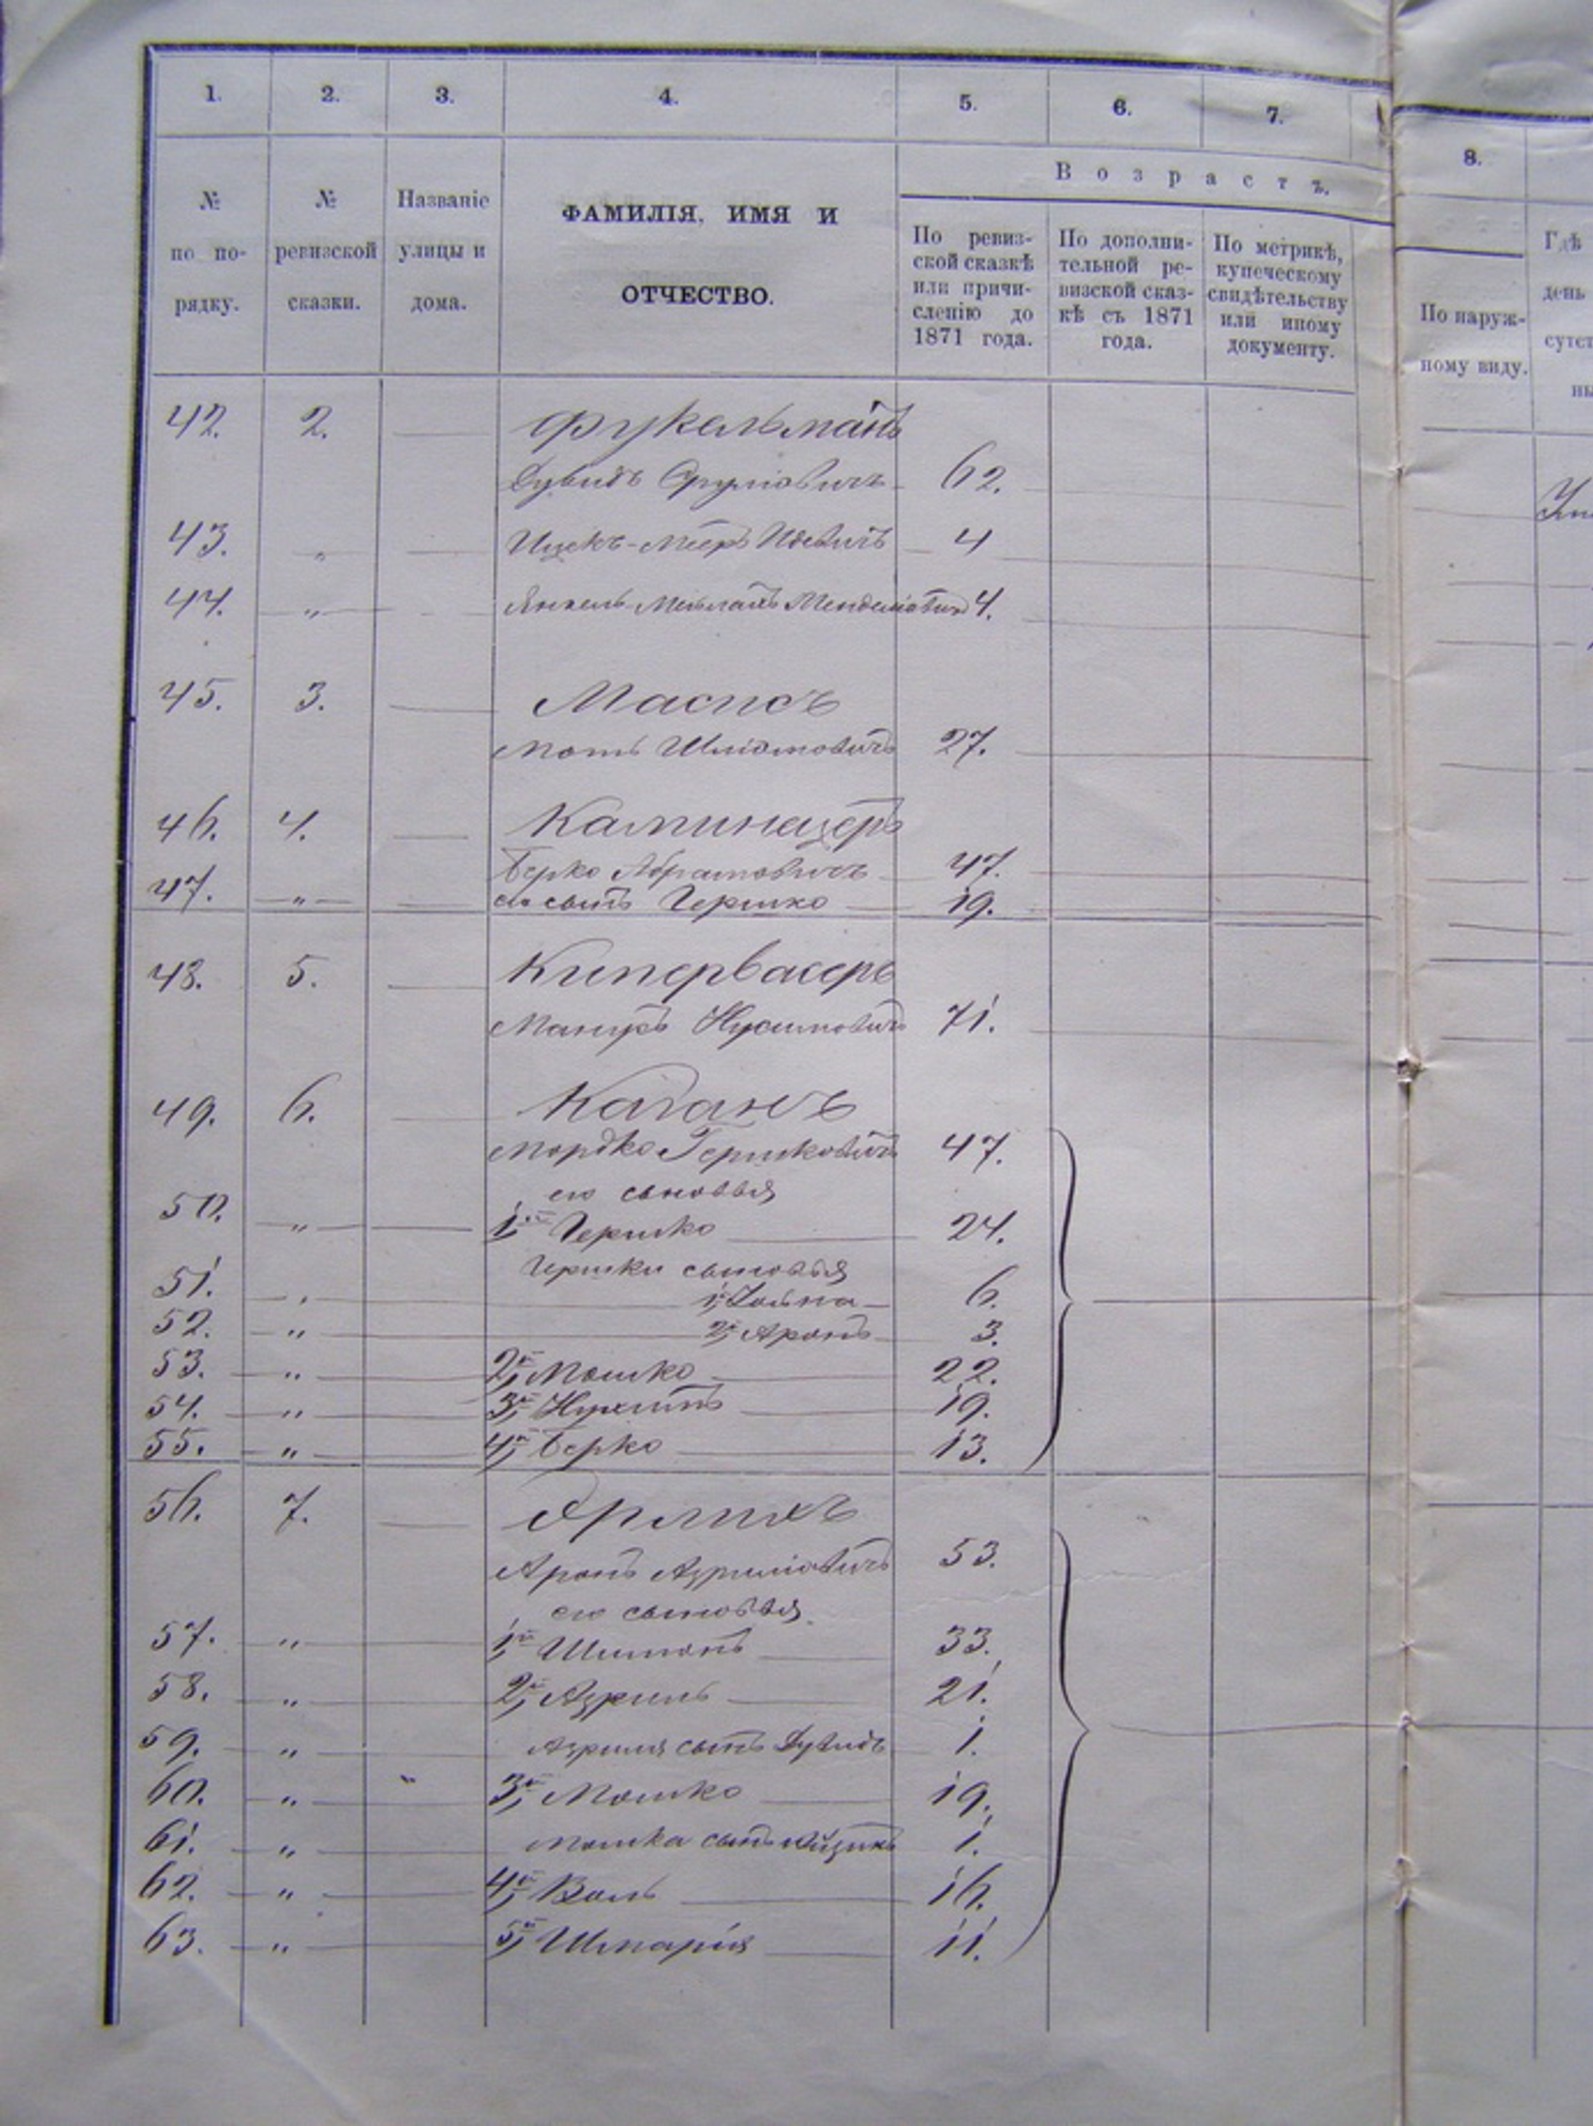 1. 2. 3. 4. 5. 6. 7. 8.
В о з р а с т ъ.
№ по по- рядку.
№ ревизской сказки.
Названіе улицы и дома.
ФАМИЛІЯ, ИМЯ И
ОТЧЕСТВО.
По ревиз-
ской сказкѣ
или причи-
сленію до
1871 года.
По дополни-
тельной ре-
визской сказ-
кѣ съ 1871
года.
По метрикѣ,
купеческому
свидѣтельству
или иному
документу.
По наруж-
ному виду.
Гдѣ
день
сутст
ны
42. 2. Фукельманъ
Дувидъ Сруліовичъ 62.
43. " Ицекъ-Мееръ Идевичъ 4
44. " Янкель-Мейлахъ Менделіовичъ 4.
45. 3.
Шліомовичъ 27.
46. 4. Каминецеръ
Берко Абрамовичъ 47.
47. " его сынъ Гершко 19.
48. 5. Кипервасеръ
Нухимовичъ 71.
49. 6. Каганъ
Мордко Гершковичъ 47.
его сыновья
50. " 1й Гершко 24.
Гершки сыновья
51. " 1, 6.
52. " 2, Аронъ 3.
53. " 2й Мошко 22.
54. " 3й Нухимъ 19.
55. " 4й Берко 13.
56. 7.
Аронъ Азриліовичъ 53.
его сыновья
57. " 1й Шимонъ 33.
58. " 2й Азриль 21.
59. " Азриля сынъ Дувидъ 1.
60. " " 3й Мошко 19.
61. " Мошка сынъ Айзикъ 1.
62. " 4й 16.
63. " 5й Шмарія 11.